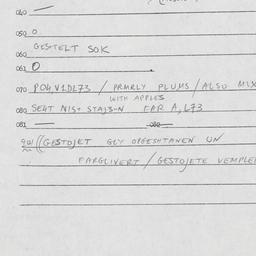 040 —
050 O
GESTELT SOK
060
061 O
070 P04,V1DL73 / PRMRLY PLUMS / ALSO MIX
WITH APPLES
080 SE4T NIS+ STAJS-N CAR A, L73
081 — 082
GESTOJET GLY OPGESHTANEN UN
FARGLIVERT / GESTOJETE VEMPLE